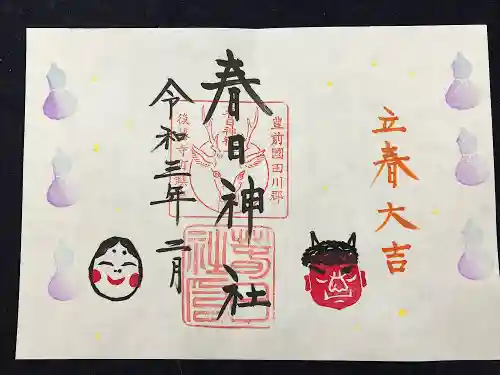 立春大吉
豊前國田川郡
春日神社
後藤寺宮鎮
令和三年二月